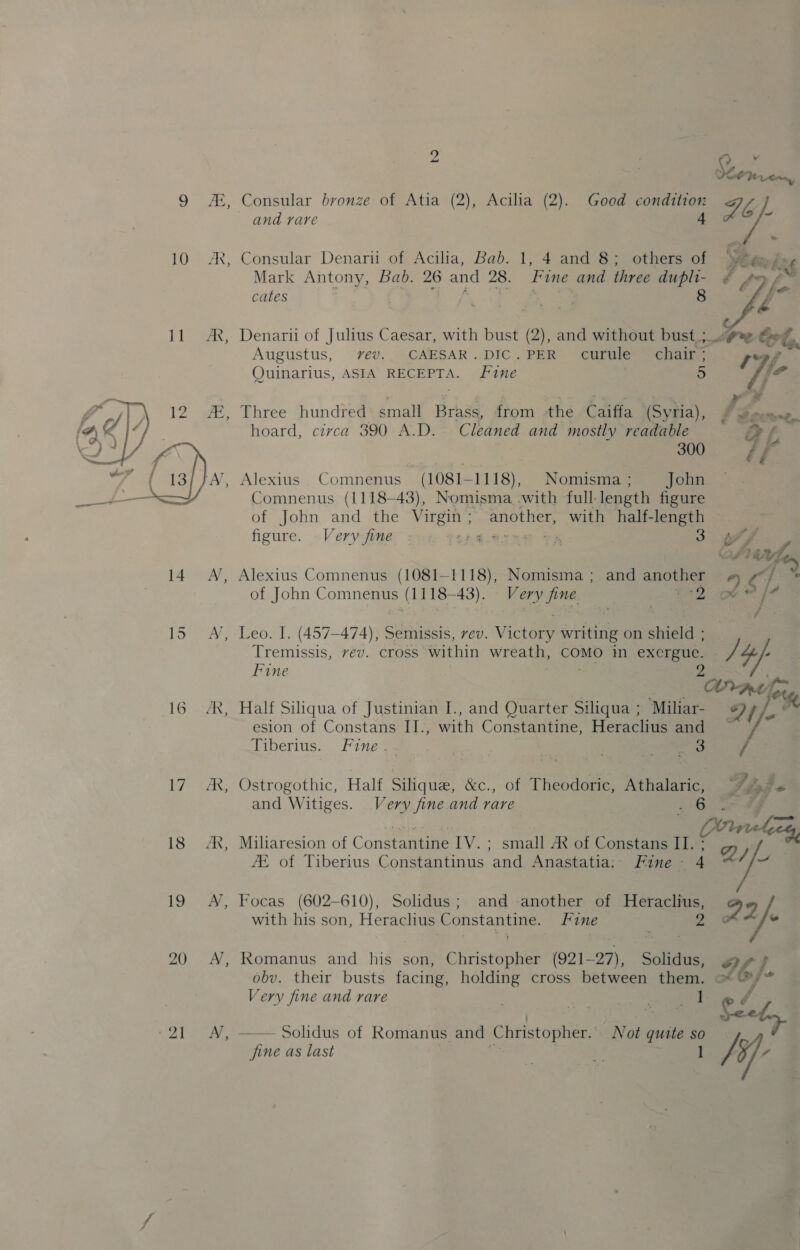 2
9 Æ, Consular bronze of Atia (2), Acilia (2). Good condition
and rare 4
26/-
10 AR, Consular Denarii of Acilia, Bab. 1, 4 and 8; others of
Mark Antony, Bab. 26 and 28. Fine and three dupli-
cates 8
11 AR, Denarii of Julius Caesar, with bust (2), and without bust;
Augustus, rev. CAESAR . DIC . PER curule chair;
Quinarius, ASIA RECEPTA. Fine 5
12 Æ, Three hundred small Brass, from the Caiffa (Syria),
hoard, circa 390 A.D. Cleaned and mostly readable
300
13 N, Alexius Comnenus (1081–1118), Nomisma; John
Comnenus (1118–43), Nomisma with full length figure
of John and the Virgin; another, with half-length
figure. Very fine 3
14 N, Alexius Comnenus (1081–1118), Nomisma; and another
of John Comnenus (1118–43). Very fine 2
25/-
15 N, Leo. I. (457–474), Semissis, rev. Victory writing on shield;
Tremissis, rev. cross within wreath, COMO in exergue.
Fine 2
14/-
16 AR, Half Siliqua of Justinian I., and Quarter Siliqua; Miliar-
esion of Constans II., with Constantine, Heraclius and
Tiberius. Fine 3
21/-
17 AR, Ostrogothic, Half Siliquæ, &c., of Theodoric, Athalaric,
and Witiges. Very fine and rare 6
18 AR, Miliaresion of Constantine IV.; small AR of Constans II.;
Æ of Tiberius Constantinus and Anastatia. Fine 4
21/-
19 N, Focas (602–610), Solidus; and another of Heraclius,
with his son, Heraclius Constantine. Fine 2
22/-
20 N, Romanus and his son, Christopher (921–27), Solidus,
obv. their busts facing, holding cross between them.
Very fine and rare 1
26/-
21 N, —— Solidus of Romanus and Christopher. Not quite so
fine as last 1